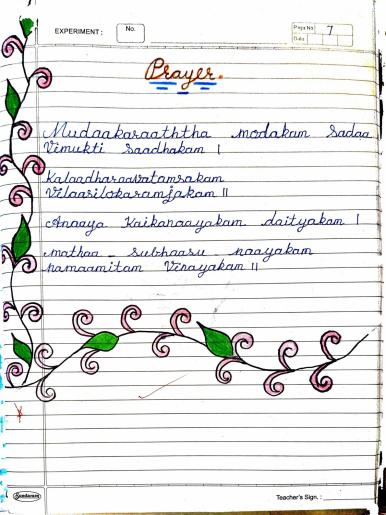 EXPERIMENT :
No.
Page No. 7
Date
Prayer.
Mudaakaraaththa modakam Sadaa
Vimukti Saadhakam |
Kalaadharaavatamsakam
Vilaasilokaramjakam ||
Anaaya Kaikanaayakam daityakam |
mathaa subhaasu naayakam
namaamitam Vinayakam ||
Sundaram
Teacher's Sign. :